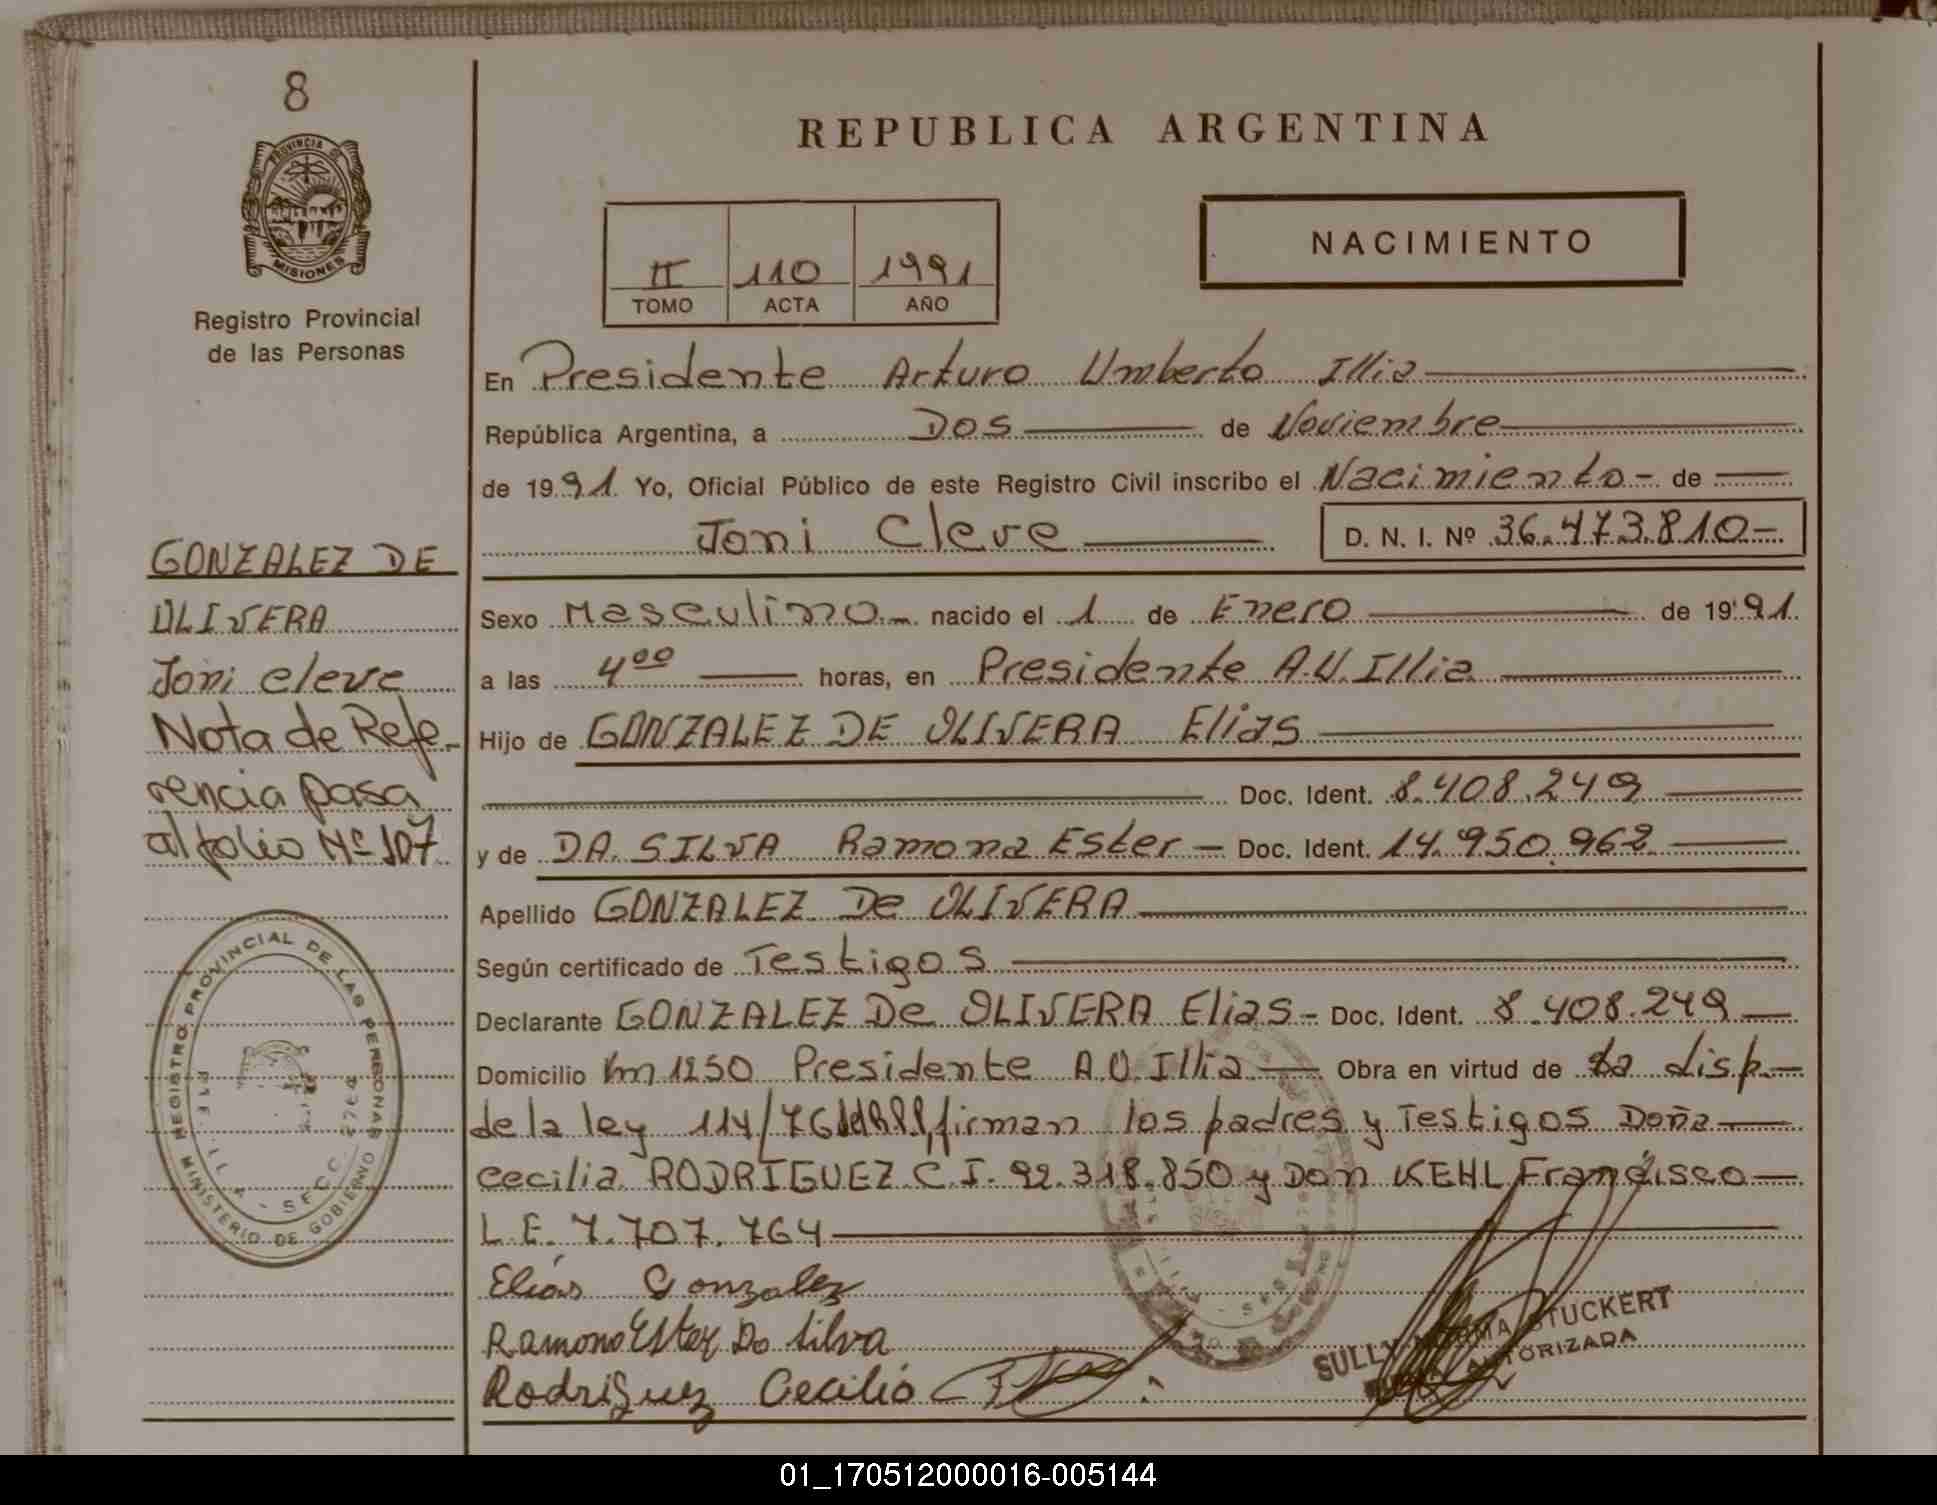 8
PROVINCIA DE
MISIONES
Registro Provincial
de las Personas
GONZALEZ DE
OLIVERA
Joni Cleve
Nota de Refe-
rencia pasa
al folio Nº 107
REGISTRO PROVINCIAL DE LAS PERSONAS
MINISTERIO DE GOBIERNO
REPUBLICA ARGENTINA
II 110 1991
TOMO ACTA AÑO
NACIMIENTO
En Presidente Arturo Umberto Illia
República Argentina, a Dos de Noviembre
de 1991 Yo, Oficial Público de este Registro Civil inscribo el Nacimiento - de
Joni Cleve D. N. I. Nº 36.473.810-
Sexo Masculino nacido el 1 de Enero de 1991
a las 4⁰⁰ horas, en Presidente A.U. Illia
Hijo de GONZALEZ DE OLIVERA Elias
Doc. Ident. 8.408.249
y de DA SILVA Ramona Ester - Doc. Ident. 14.950.962
Apellido GONZALEZ De OLIVERA
Según certificado de Testigos
Declarante GONZALEZ De OLIVERA Elias - Doc. Ident. 8.408.249
Domicilio Km 1250 Presidente A.U. Illia Obra en virtud de la disp.
de la ley 114/76 firman los padres y Testigos Doña
Cecilia RODRIGUEZ C.I. 92.318.850 y Don KEHL Francisco
L.E. 7.707.764
Elias Gonzalez
Ramona Ester Da Silva
Rodriguez Cecilio
SULLY NORMA STUCKERT
AUTORIZADA
01_170512000016-005144